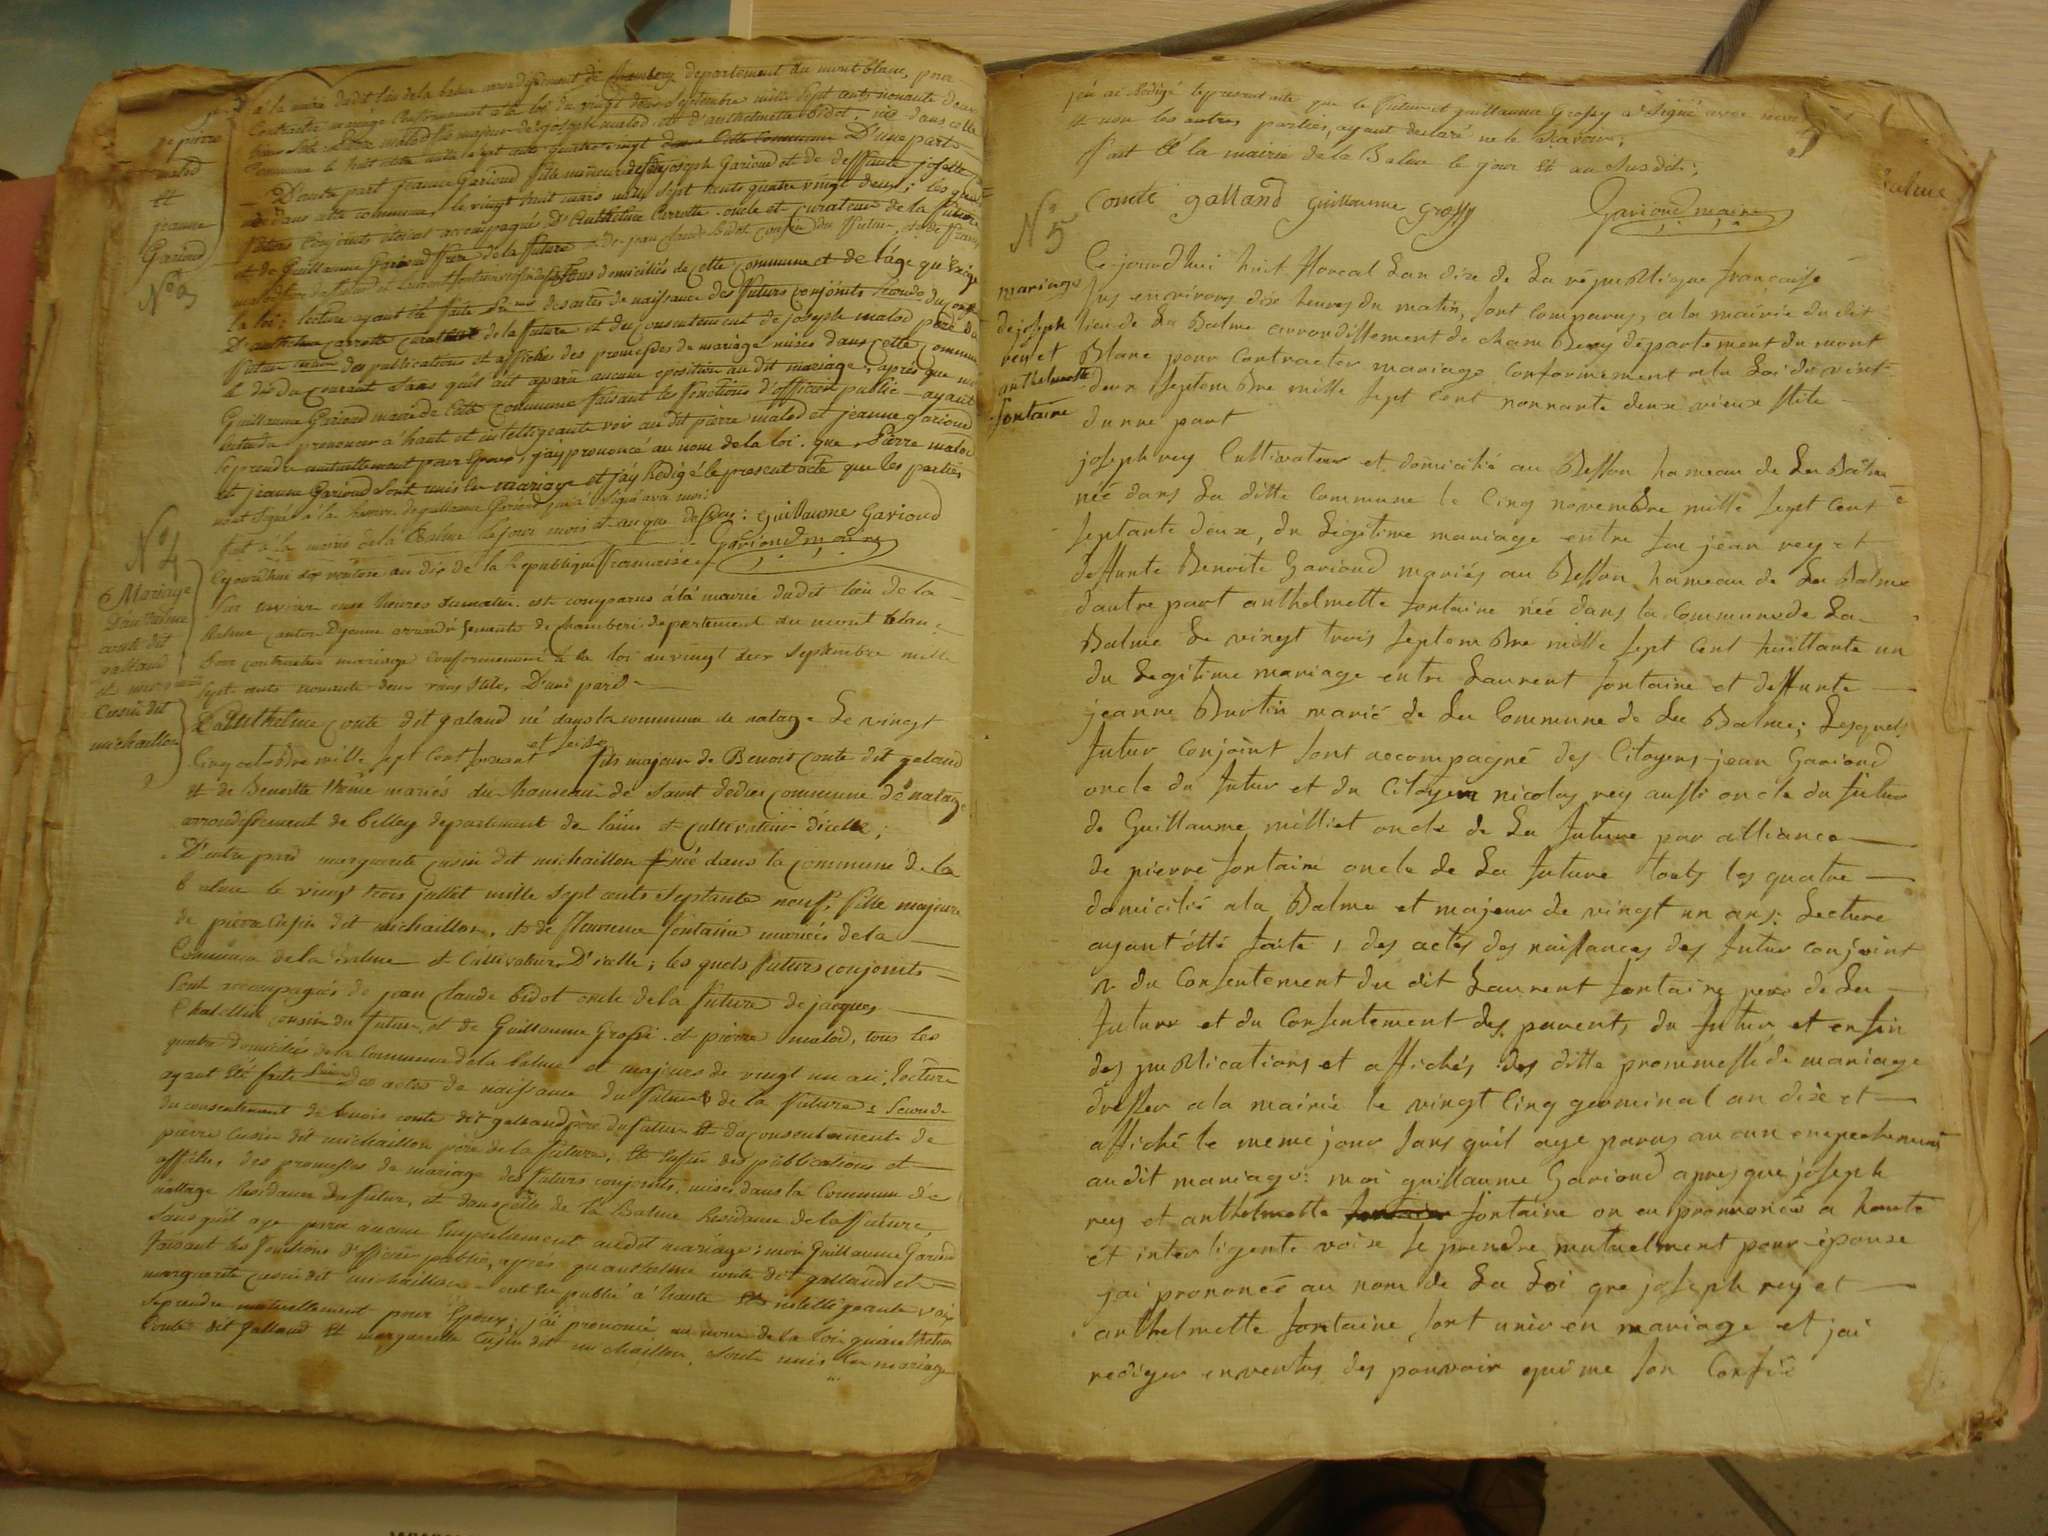 à la mairie dudit lieu de la balme arrondissement de Chambery departement du mont blanc, pour
contracter mariage conformement à la loi du vingt deux Septembre mille sept cents nonante deux
malod fils majeur de joseph malod et d'anthelmette bidot, née dans cette
commune le huit mille sept cents quatre vingt D'une part
D'autre part jeanne Garioud fille mineure de joseph Garioud et de deffunte josette
née dans cette commune, le vingt huit mars mille sept cents quatre vingt deux; les quels
futurs conjoints étoient accompagnés D'Anthelme Carrotte oncle et curateur de la future
et de Guillaume Gariond frere de la future et de jean claude bidot cousin du futur, et de
malod tous domiciliés de cette commune et de l'âge qu'exige
la loi; lecture ayant été faite des actes de naissance des futurs conjoints
D'anthelme carrotte curateur de la future et du consentement de joseph malod pere du
futur des publications et affiches des promesses de mariage mises dans cette commune
le dix du courant sans qu'il ait aparu aucune oposition au dit mariage; après que moi
Guillaume Gariond maire de cette commune faisant les fonctions d'officier public ayant
entendu prononcer à haute et intelligeante voix au dit pierre malod et jeanne gariond
se prendre mutuellement pour Epoux, j'ay prononcé au nom de la loi que Pierre malod
et jeanne Gariond sont unis en mariage et j'ay Redigé le present acte que les parties
nont signé à la Reserve de guillaume Gariond qui a signé avec moi
fait à la mairie de la Balme les jour mois et an que dessus: Guillaume Gariond
Gariond maire
de pierre
malod
et
jeanne
Gariond
N° 3
N° 4
Mariage
D'anthelme
conte dit
galland
et marguerite
Cusin dit
michaillon
Cejourdhui dix ventose an dix de la Republique francaise
sur environ onze heures du matin est comparus à la mairie dudit lieu de la
Balme canton D'yenne arrondissement de chamberi departement du mont blanc
pour contracter mariage conformement à la loi du vingt deux septembre mille
sept cents nonante deux vieux stile, D'une part
D'anthelme conte dit galand né dans la commune de natage Le vingt
Cinq octobre mille sept Cent soixant et seise fils majeur de Benoit conte dit galand
et de Benoitte mariés du hameau de saint dedier commune de natage
arrondissement de belley departement de lain et cultivateur dicelle;
D'autre part marguerite cusin dit michaillon née dans la commune de la
balme le vingt trois jullet mille sept cents septante neuf, fille majeure
de pierre Cusin dit michaillon, et de fleurence fontaine mariés de la
Commune de la balme et Cultivateur D'icelle; les quels futurs conjoints
sont accompagnés de jean claude bidot oncle de la future de jacques
Chatellin cousin du futur, et de Guillaume Grossi et pierre malod, tous les
quatre domiciliés de la Commune de la balme et majeurs de vingt un an; lecture
ayant été faite des actes de naissance du futur & de la future; secondo
du consentement de benois conte dit galand père du futur et du consentement de
pierre cusin dit michaillon père de la future, et enfin des publications et
affiches, des promesses de mariage des futurs conjoints, mises dans la Commune de
nattage Residance du futur, et dans celle de la Balme Residance de la future
sans quil aye paru aucune Empechement audit mariage; moi Guillaume Gariond
faisant les fonctions d'officier public, après qu'anthelme conte dit galland et
marguerite cusin dit michaillon ont été publié à haute et intelligeante voix
se prendre mutuellement pour Epoux; j'ai prononcé, au nom de la loi qu'anthelme
Conte dit Galland et marguerite Cusin dit michaillon, sonts unis en mariage
j'en ai Rédigé le present acte que le futur et guillaume Grossy a Signé avec moi
et non les autres parties, ayant declaré ne le Savoir;
fait à la mairie de la Balme le jour et an Susdit;
Balme
conte galland guillaume grossy
Gariond maire
N° 5
mariage
de joseph
rey et
anthelmette
fontaine
Ce-jourdhui huit floreal Lan dixe de La république française
Sus envirrons dixe heures du matin, sont comparus, a la mairie du dit
lieu de La Balme arrondissement de cham Bery département du mont
Blanc pour contracter mariage conformement a la Loi du vint
deux septem bre mille sept Cent nonnante deux vieux stile
dunne part
joseph rey Cultivateur et domicilié au Besson hameau de La Balme
née dans La ditte Commune le Cinq novembre mille sept Cent
septante deux, du Légitime mariage entre feu jean rey et
deffunte Benoite Gariond mariés au Besson hameau de La Balme
dautre part anthelmette fontaine néé dans la Commune de La
Balme Le vingt trois septem bre mille sept Cent huittante un
du Legitime mariage entre Laurent fontaine et deffunte
jeanne Burtin marié de La Commune de La Balme; Lesquels
futur conjoint sont accompagné des Citoyens jean Gariond
oncle du futur et du Citoyen nicolas rey aussi oncle du futur
de Guillaume milliet oncle de La future par alliance
de pierre fontaine oncle de La future touts les quatre
domicilié a la Balme et majeur de vingt un ans: Lecture
ayant étté faite 1 des actes des naissances des futur conjoint
2 du Consentement du dit Laurent fontaine pere de La
future et du Consentement des parents du futur et enfin
des publications et affichés des ditte prommesse de mariage
dresser a la mairie le vingt Cinq germinal an dixe et
affiché le meme jour sans quil aye parus aucun empechement
au dit mariage: moi guillaume Gariond apres que joseph
rey et anthelmette fontaine on eu prononcés a haute
ét inteligente voixe se prendre mutuelment pour épouse
jai prononcé au nom de La Loi que joseph rey et
anthelmette fontaine sont unis en mariage et jai
rediger enventus des pouvoir qui me son Confié